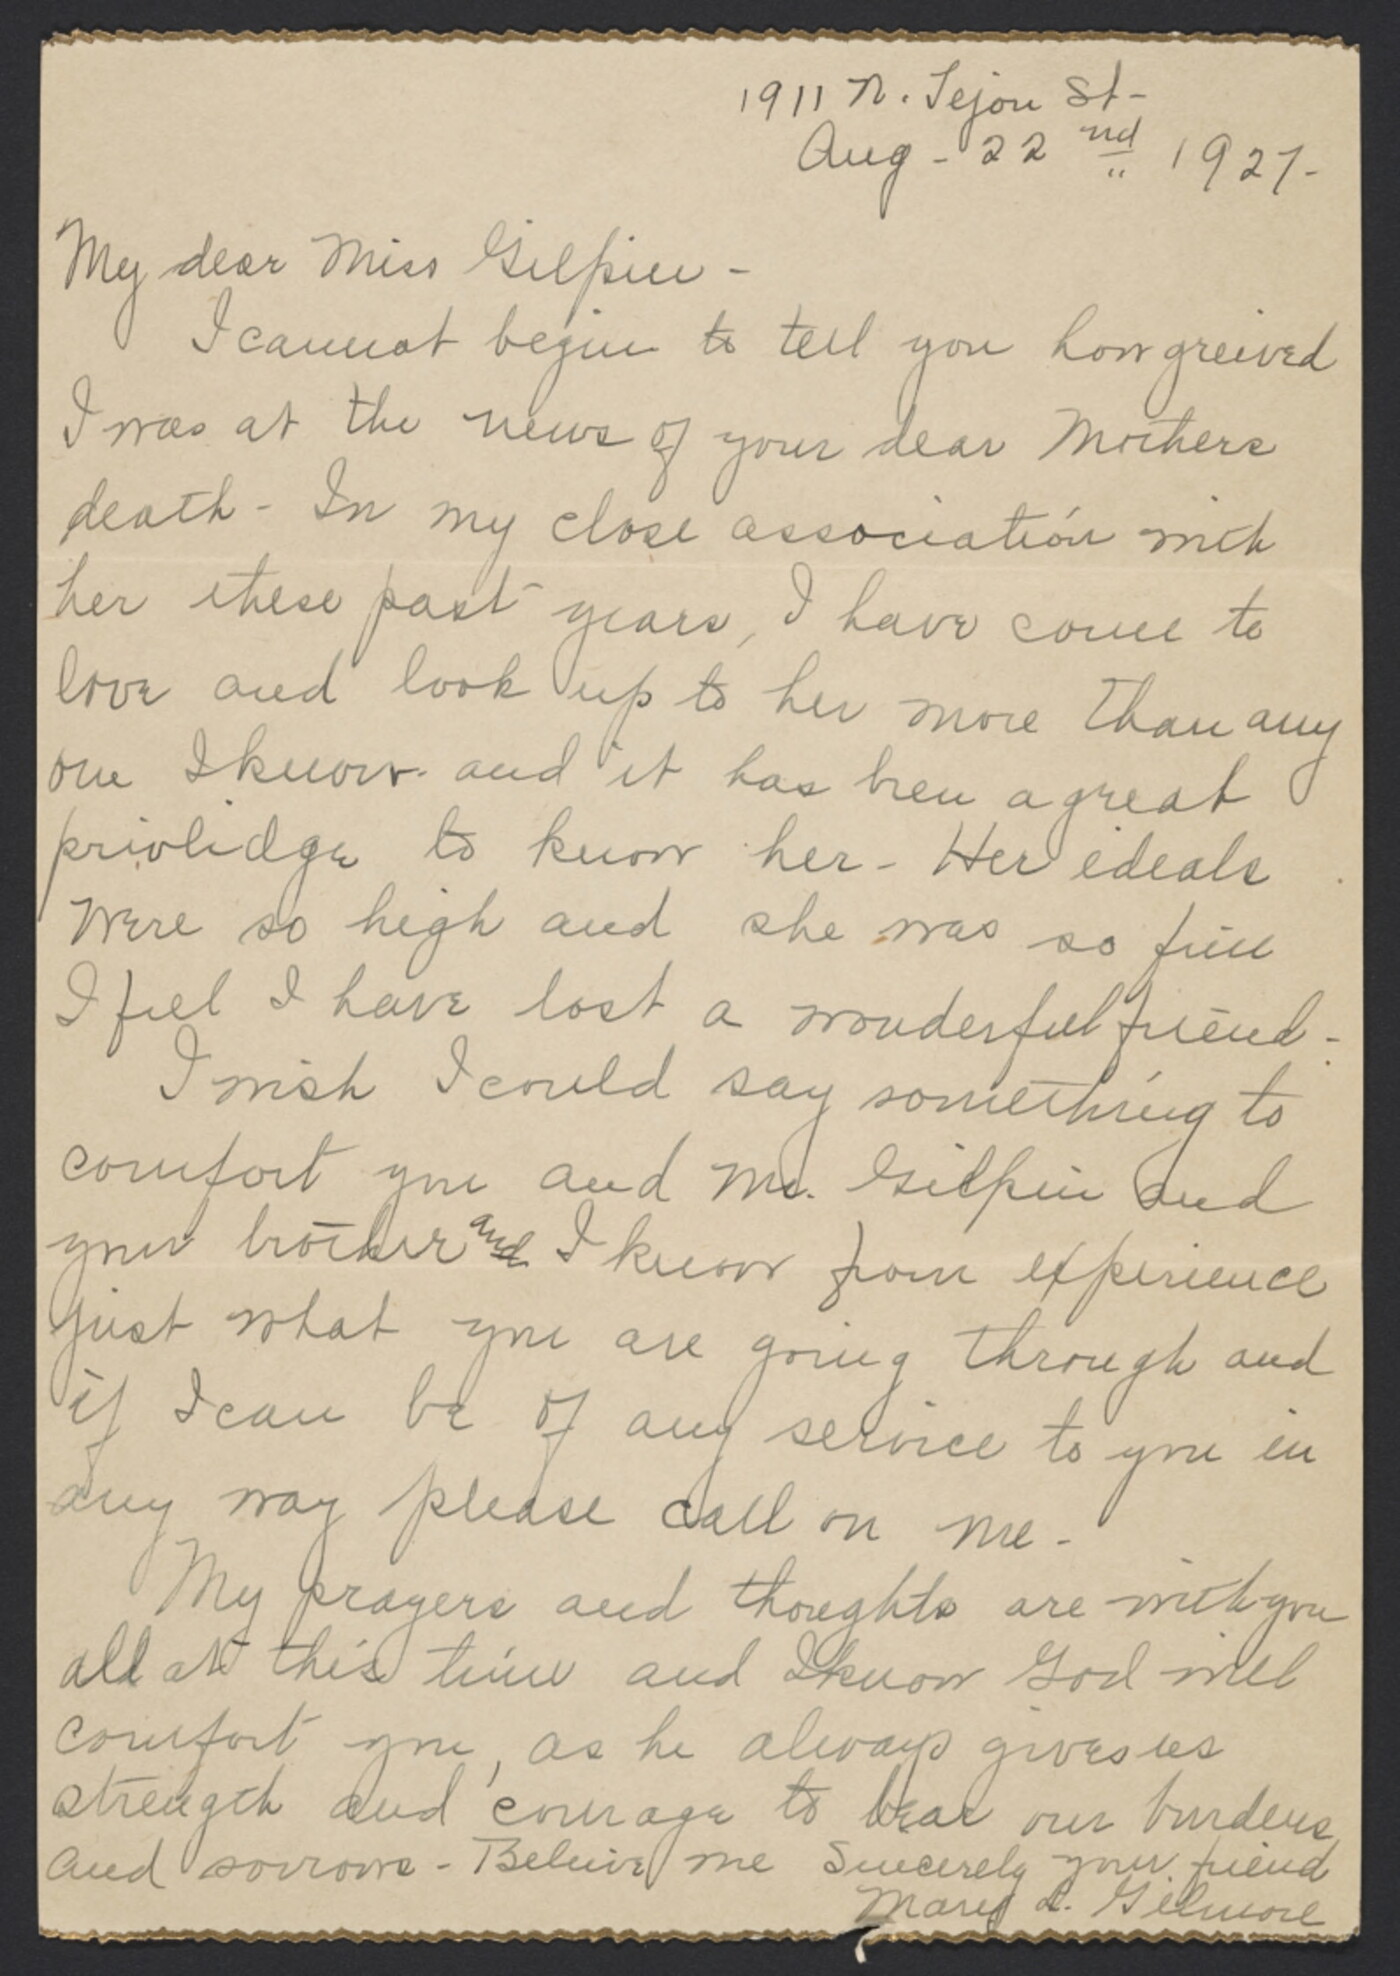 1911 N. Tejon St-
Aug - 22nd 1927-
My dear Miss Gilpin -
I cannot begin to tell you how greived
I was at the news of your dear Mothers
death - In my close association with
her these past years, I have come to
love and look up to her more than any
one I know and it has been a great
privlidge to know her - Her ideals
were so high and she was so fine
I feel I have lost a wonderful friend -
I wish I could say something to
comfort you and Mr. Gilpin and
your brother and I know from experience
just what you are going through and
if I can be of any service to you in
any way please call on me -
My prayers and thoughts are with you
all at this time and I know God will
comfort you, as he always gives us
strength and courage to bear our burdens,
and sorrows - Beleive me Sincerely your friend
Mary L. Gilmore